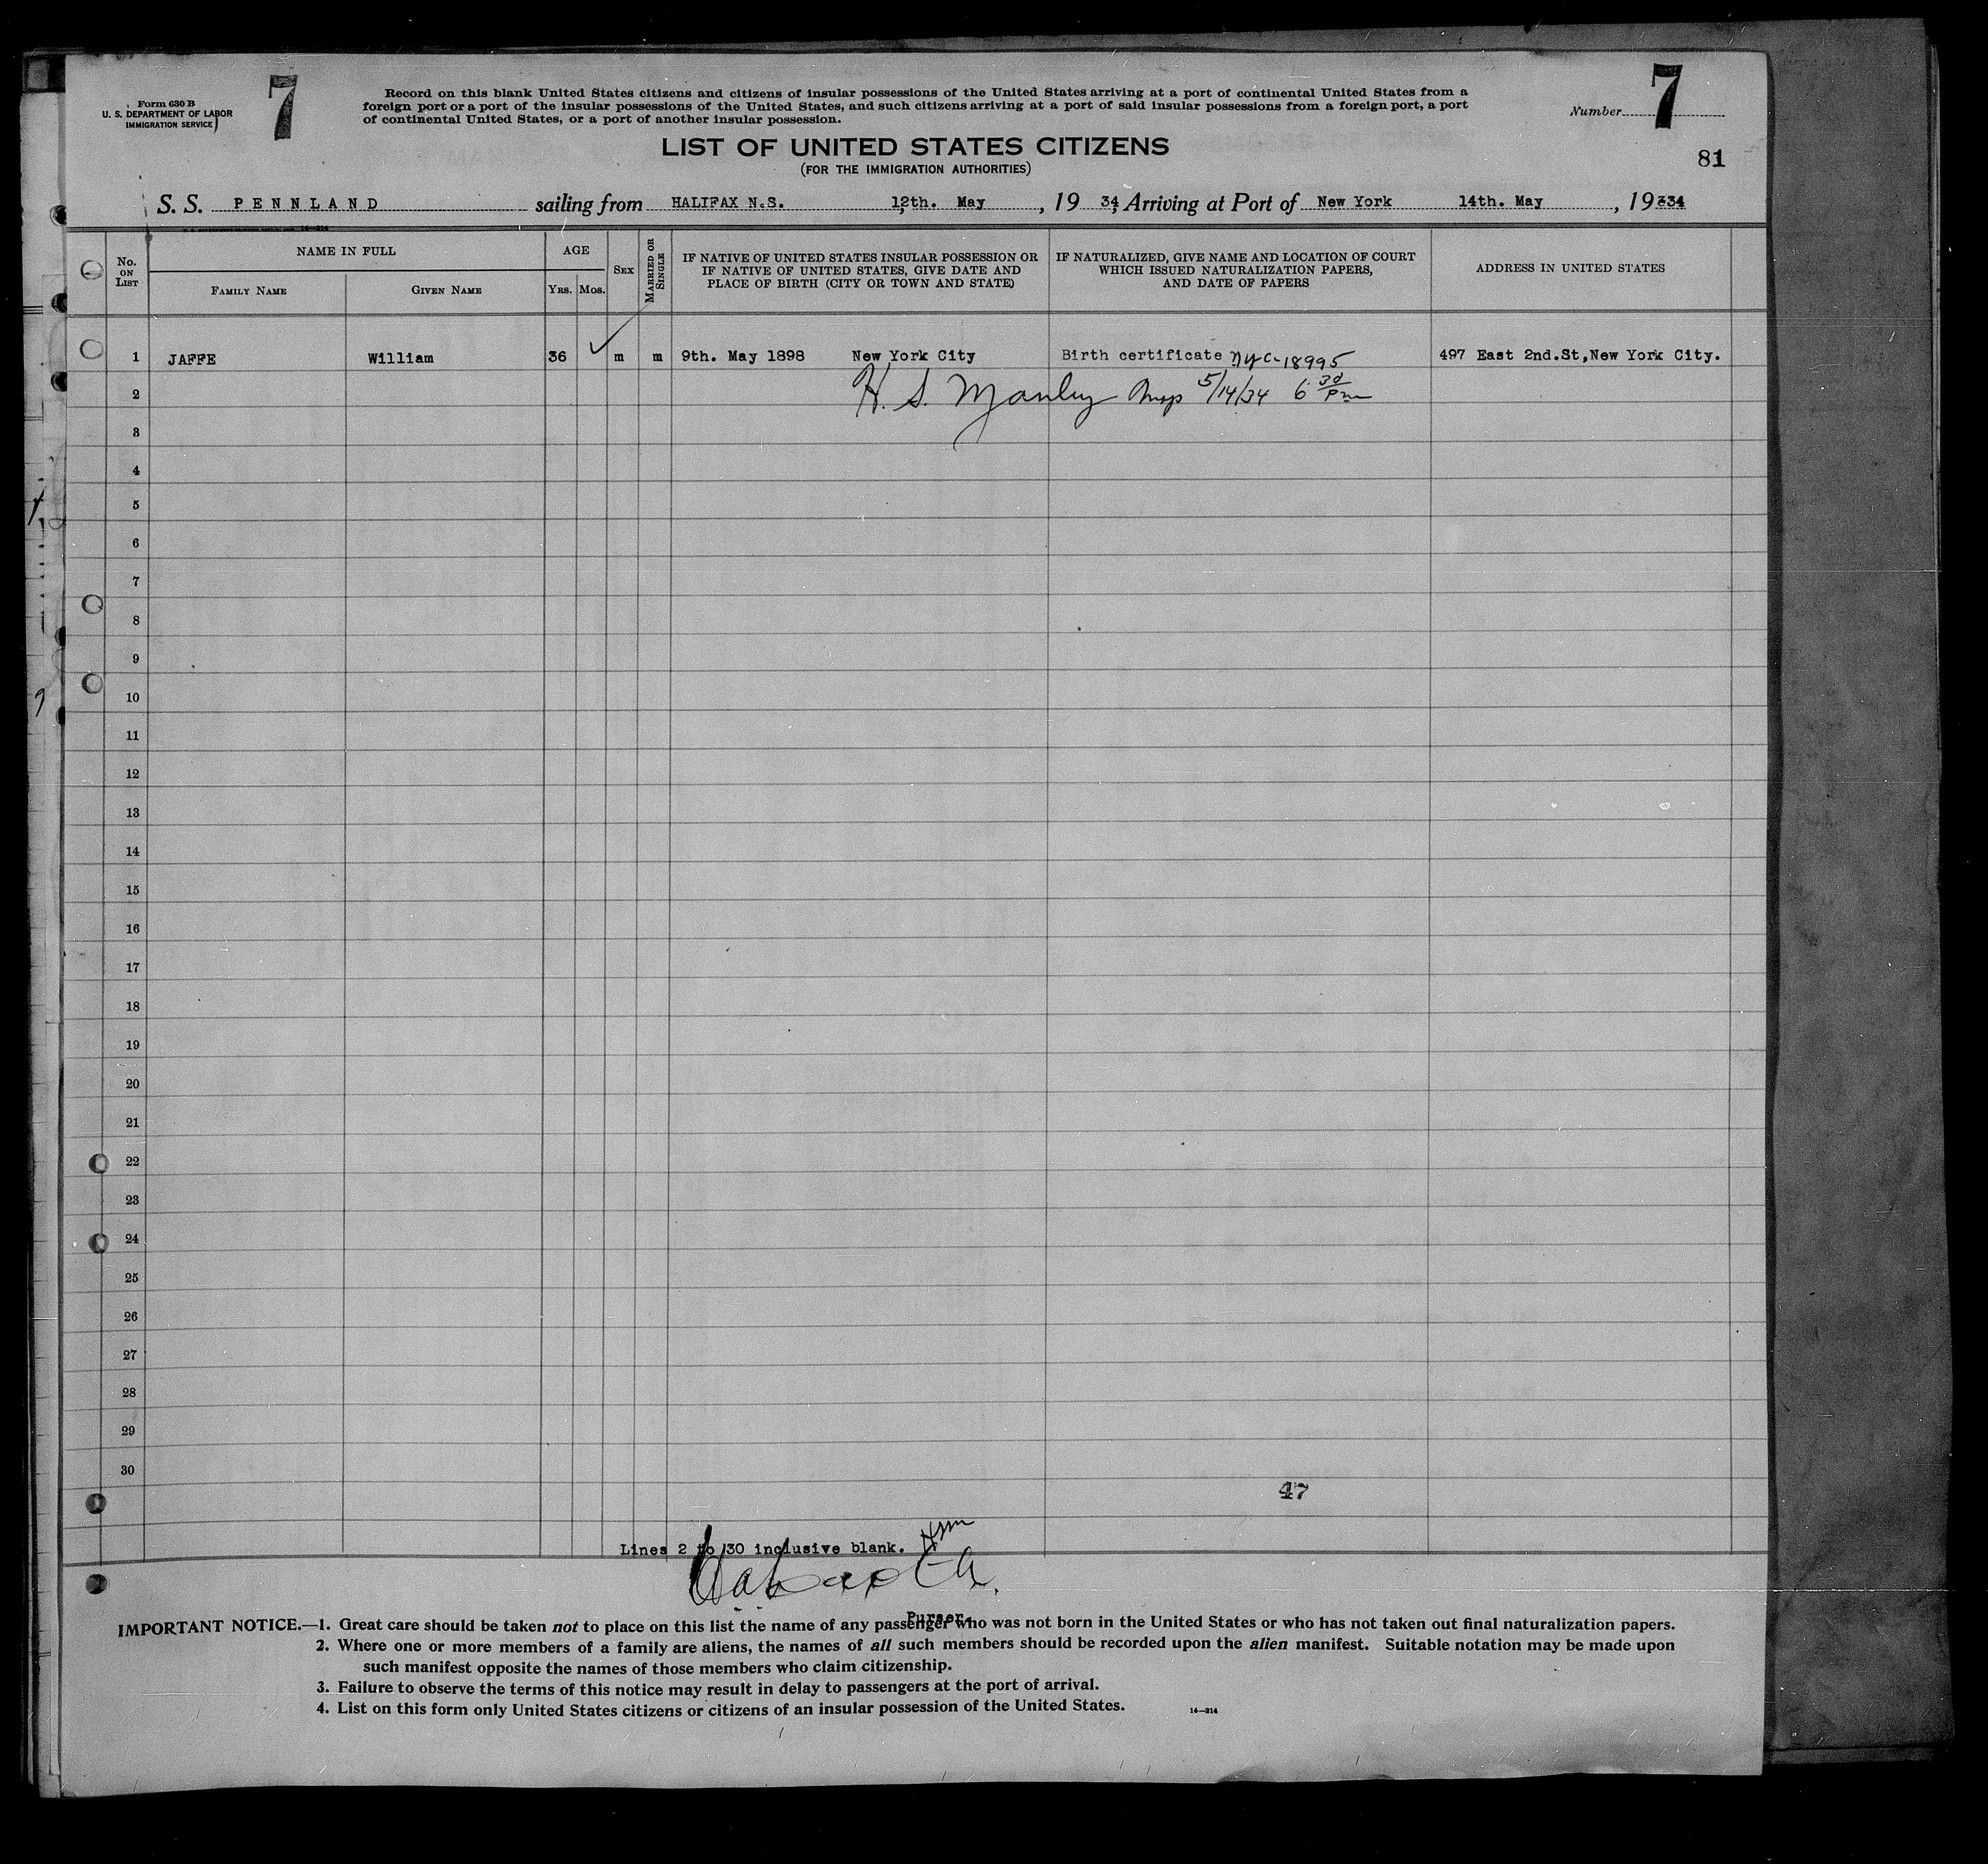 Form 630 B
U. S. DEPARTMENT OF LABOR
IMMIGRATION SERVICE
7
Record on this blank United States citizens and citizens of insular possessions of the United States arriving at a port of continental United States from a
foreign port or a port of the insular possessions of the United States, and such citizens arriving at a port of said insular possessions from a foreign port, a port
of continental United States, or a port of another insular possession.
Number 7
LIST OF UNITED STATES CITIZENS
(FOR THE IMMIGRATION AUTHORITIES)
81
S. S. PENNLAND sailing from HALIFAX N.S. 12th. May, 19 34, Arriving at Port of New York 14th. May, 19334
No. ON LIST
NAME IN FULL
FAMILY NAME
GIVEN NAME
AGE
YRS.
MOS.
SEX
MARRIED OR SINGLE
IF NATIVE OF UNITED STATES INSULAR POSSESSION OR
IF NATIVE OF UNITED STATES, GIVE DATE AND
PLACE OF BIRTH (CITY OR TOWN AND STATE)
IF NATURALIZED, GIVE NAME AND LOCATION OF COURT
WHICH ISSUED NATURALIZATION PAPERS,
AND DATE OF PAPERS
ADDRESS IN UNITED STATES
1 JAFFE William 36 m m 9th. May 1898 New York City Birth certificate NYC-18995 497 East 2nd.St,New York City.
2 H. S. Manley Insp 5/14/34 6 30 Pm
3
4
5
6
7
8
9
10
11
12
13
14
15
16
17
18
19
20
21
22
23
24
25
26
27
28
29
30
47
Lines 2 to 30 inclusive blank. HSM
Purser.
IMPORTANT NOTICE.—1. Great care should be taken not to place on this list the name of any passenger who was not born in the United States or who has not taken out final naturalization papers.
2. Where one or more members of a family are aliens, the names of all such members should be recorded upon the alien manifest. Suitable notation may be made upon
such manifest opposite the names of those members who claim citizenship.
3. Failure to observe the terms of this notice may result in delay to passengers at the port of arrival.
4. List on this form only United States citizens or citizens of an insular possession of the United States.
14—214